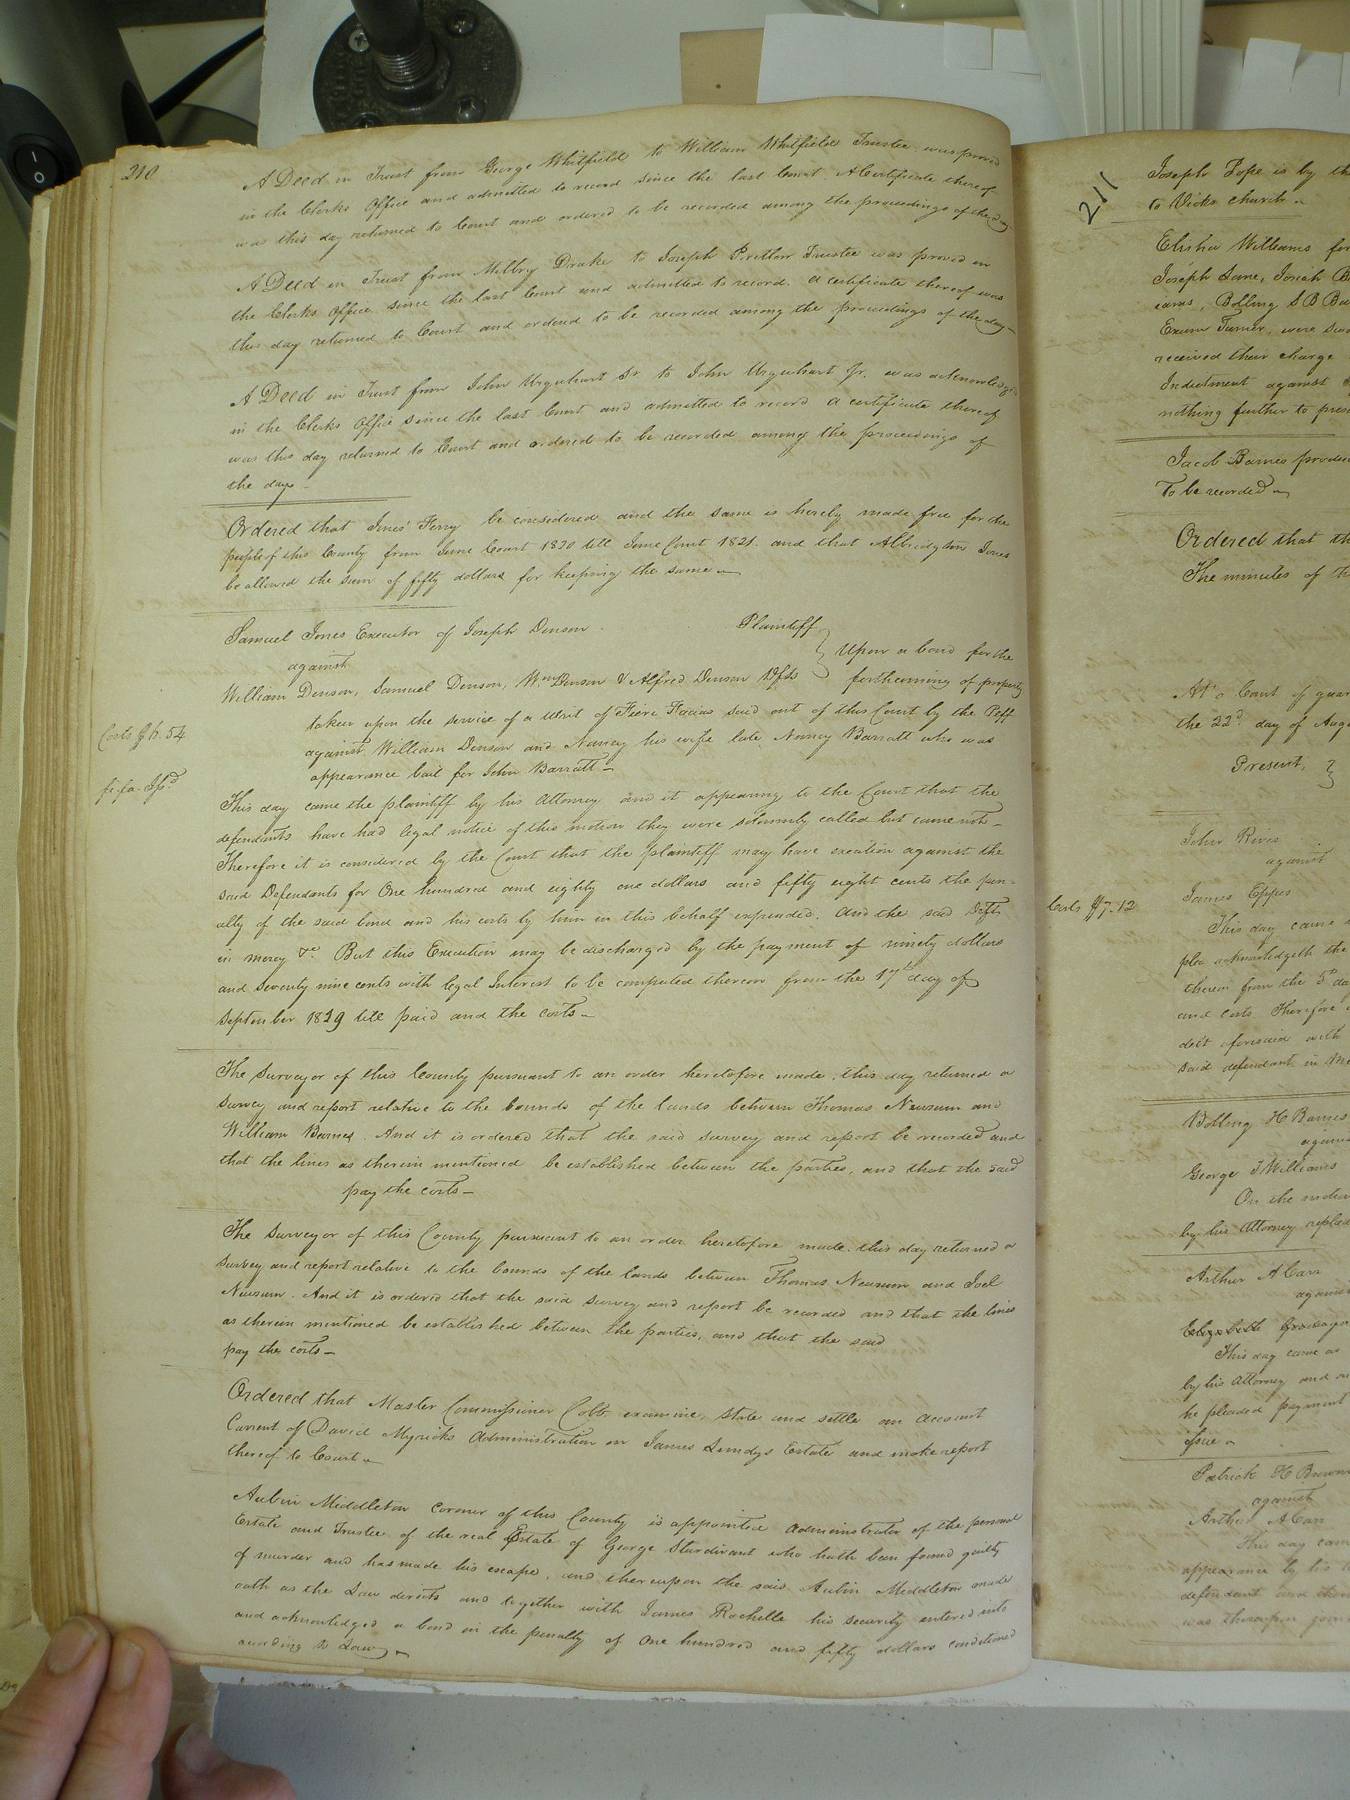 210
A Deed in Trust from George Whitfield to William Whitfield Trustee was proved
in the Clerks Office and admitted to record since the last Court A Certificate thereof
was this day returned to Court and ordered to be recorded among the proceedings of the day
A Deed in Trust from Milbry Drake to Joseph Pretlow Trustee was proved in
the Clerks Office since the last Court and admitted to record. a certificate thereof was
this day returned to Court and ordered to be recorded among the proceedings of the day
A Deed in Trust from John Urquhart Sr to John Urquhart Jr. was acknowledged
in the Clerks Office since the last Court and admitted to record a certificate thereof
was this day returned to Court and ordered to be recorded among the proceedings of
the day
Ordered that Jones' Ferry be considered and the same is hereby made free for the
people of this County from June Court 1830 till June Court 1831. and that Albridgton Jones
be allowed the sum of fifty dollars for keeping the same
Samuel Jones Executor of Joseph Denson Plaintiff
against
William Denson, Samuel Denson, Wm Denson & Alfred Denson Dfts
Upon a bond for the
forthcoming of property
taken upon the service of a Writ of Fieri Facias sued out of this Court by the Plff
against William Denson and Nancy his wife late Nancy Barratt who was
appearance bail for John Barratt
Costs $6.54
fi. fa. Issd
This day came the plaintiff by his Attorney and it appearing to the Court that the
defendants have had legal notice of this motion they were solemnly called but came not
Therefore it is considered by the Court that the plaintiff may have execution against the
said Defendants for One hundred and eighty one dollars and fifty eight cents the pen-
alty of the said bond and his costs by him in this behalf expended. And the said Dfts
in mercy &c. But this Execution may be discharged by the payment of ninety dollars
and seventy nine cents with legal Interest to be computed thereon from the 17th day of
September 1829 till paid and the costs
The Surveyor of this County pursuant to an order heretofore made, this day returned a
survey and report relative to the bounds of the lands between Thomas Newsum and
William Barnes. And it is ordered that the said survey and report be recorded and
that the lines as therein mentioned be established between the parties, and that the said
pay the costs
The Surveyor of this County pursuant to an order heretofore made this day returned a
survey and report relative to the bounds of the lands between Thomas Newsum and Joel
Newsum. And it is ordered that the said survey and report be recorded and that the lines
as therein mentioned be established between the parties, and that the said
pay the costs
Ordered that Master Commissioner Cobb examine, state and settle an account
Current of David Myricks Administration on James Lundys Estate and make report
thereof to Court
Aubin Middleton Coroner of this County is appointed administrator of the personal
Estate and Trustee of the real Estate of George Sturdivant who hath been found guilty
of murder and has made his escape, and thereupon the said Aubin Middleton made
oath as the Law directs and together with James Rochelle his security entered into
and acknowledged a bond in the penalty of One hundred and fifty dollars conditioned
according to Law
211
Joseph Pope is by th
to Vicks church
Elisha Williams for
Joseph Lane, Jonah B
Bolling S B Ba
Exum Turner, were
received their charge
Indictment against
nothing further to pres
Jacob Barnes produc
To be recorded
Ordered that th
The minutes of th
At a Court of quar
the 22d day of Aug
Present,
John Rives
against
James Epps
Costs $7.12
This day came
plea acknowledgeth the
therein from the 5th da
and costs Therefore
debt aforesaid with
said defendant in me
Bolling H Barnes
again
George J Williams
On the motion
by his Attorney replied
Arthur A Carr
agains
Elizabeth
This day came as
by his Attorney and
he pleaded payment
issue
Patrick H Brown
against
Arthur A Carr
This day cam
appearance by his
defendant and
was thereupon